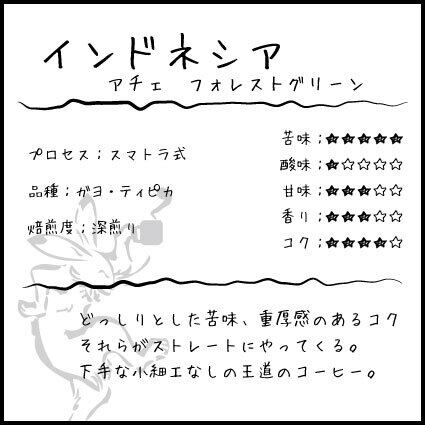 インドネシア
アチェ フォレストグリーン
プロセス；スマトラ式
品種；ガヨ・ティピカ
焙煎度；深煎り
苦味；★★★★★
酸味；★☆☆☆☆
甘味；★★★☆☆
香り；★★★☆☆
コク；★★★★☆
どっしりとした苦味、重厚感のあるコク
それらがストレートにやってくる。
下手な小細工なしの王道のコーヒー。